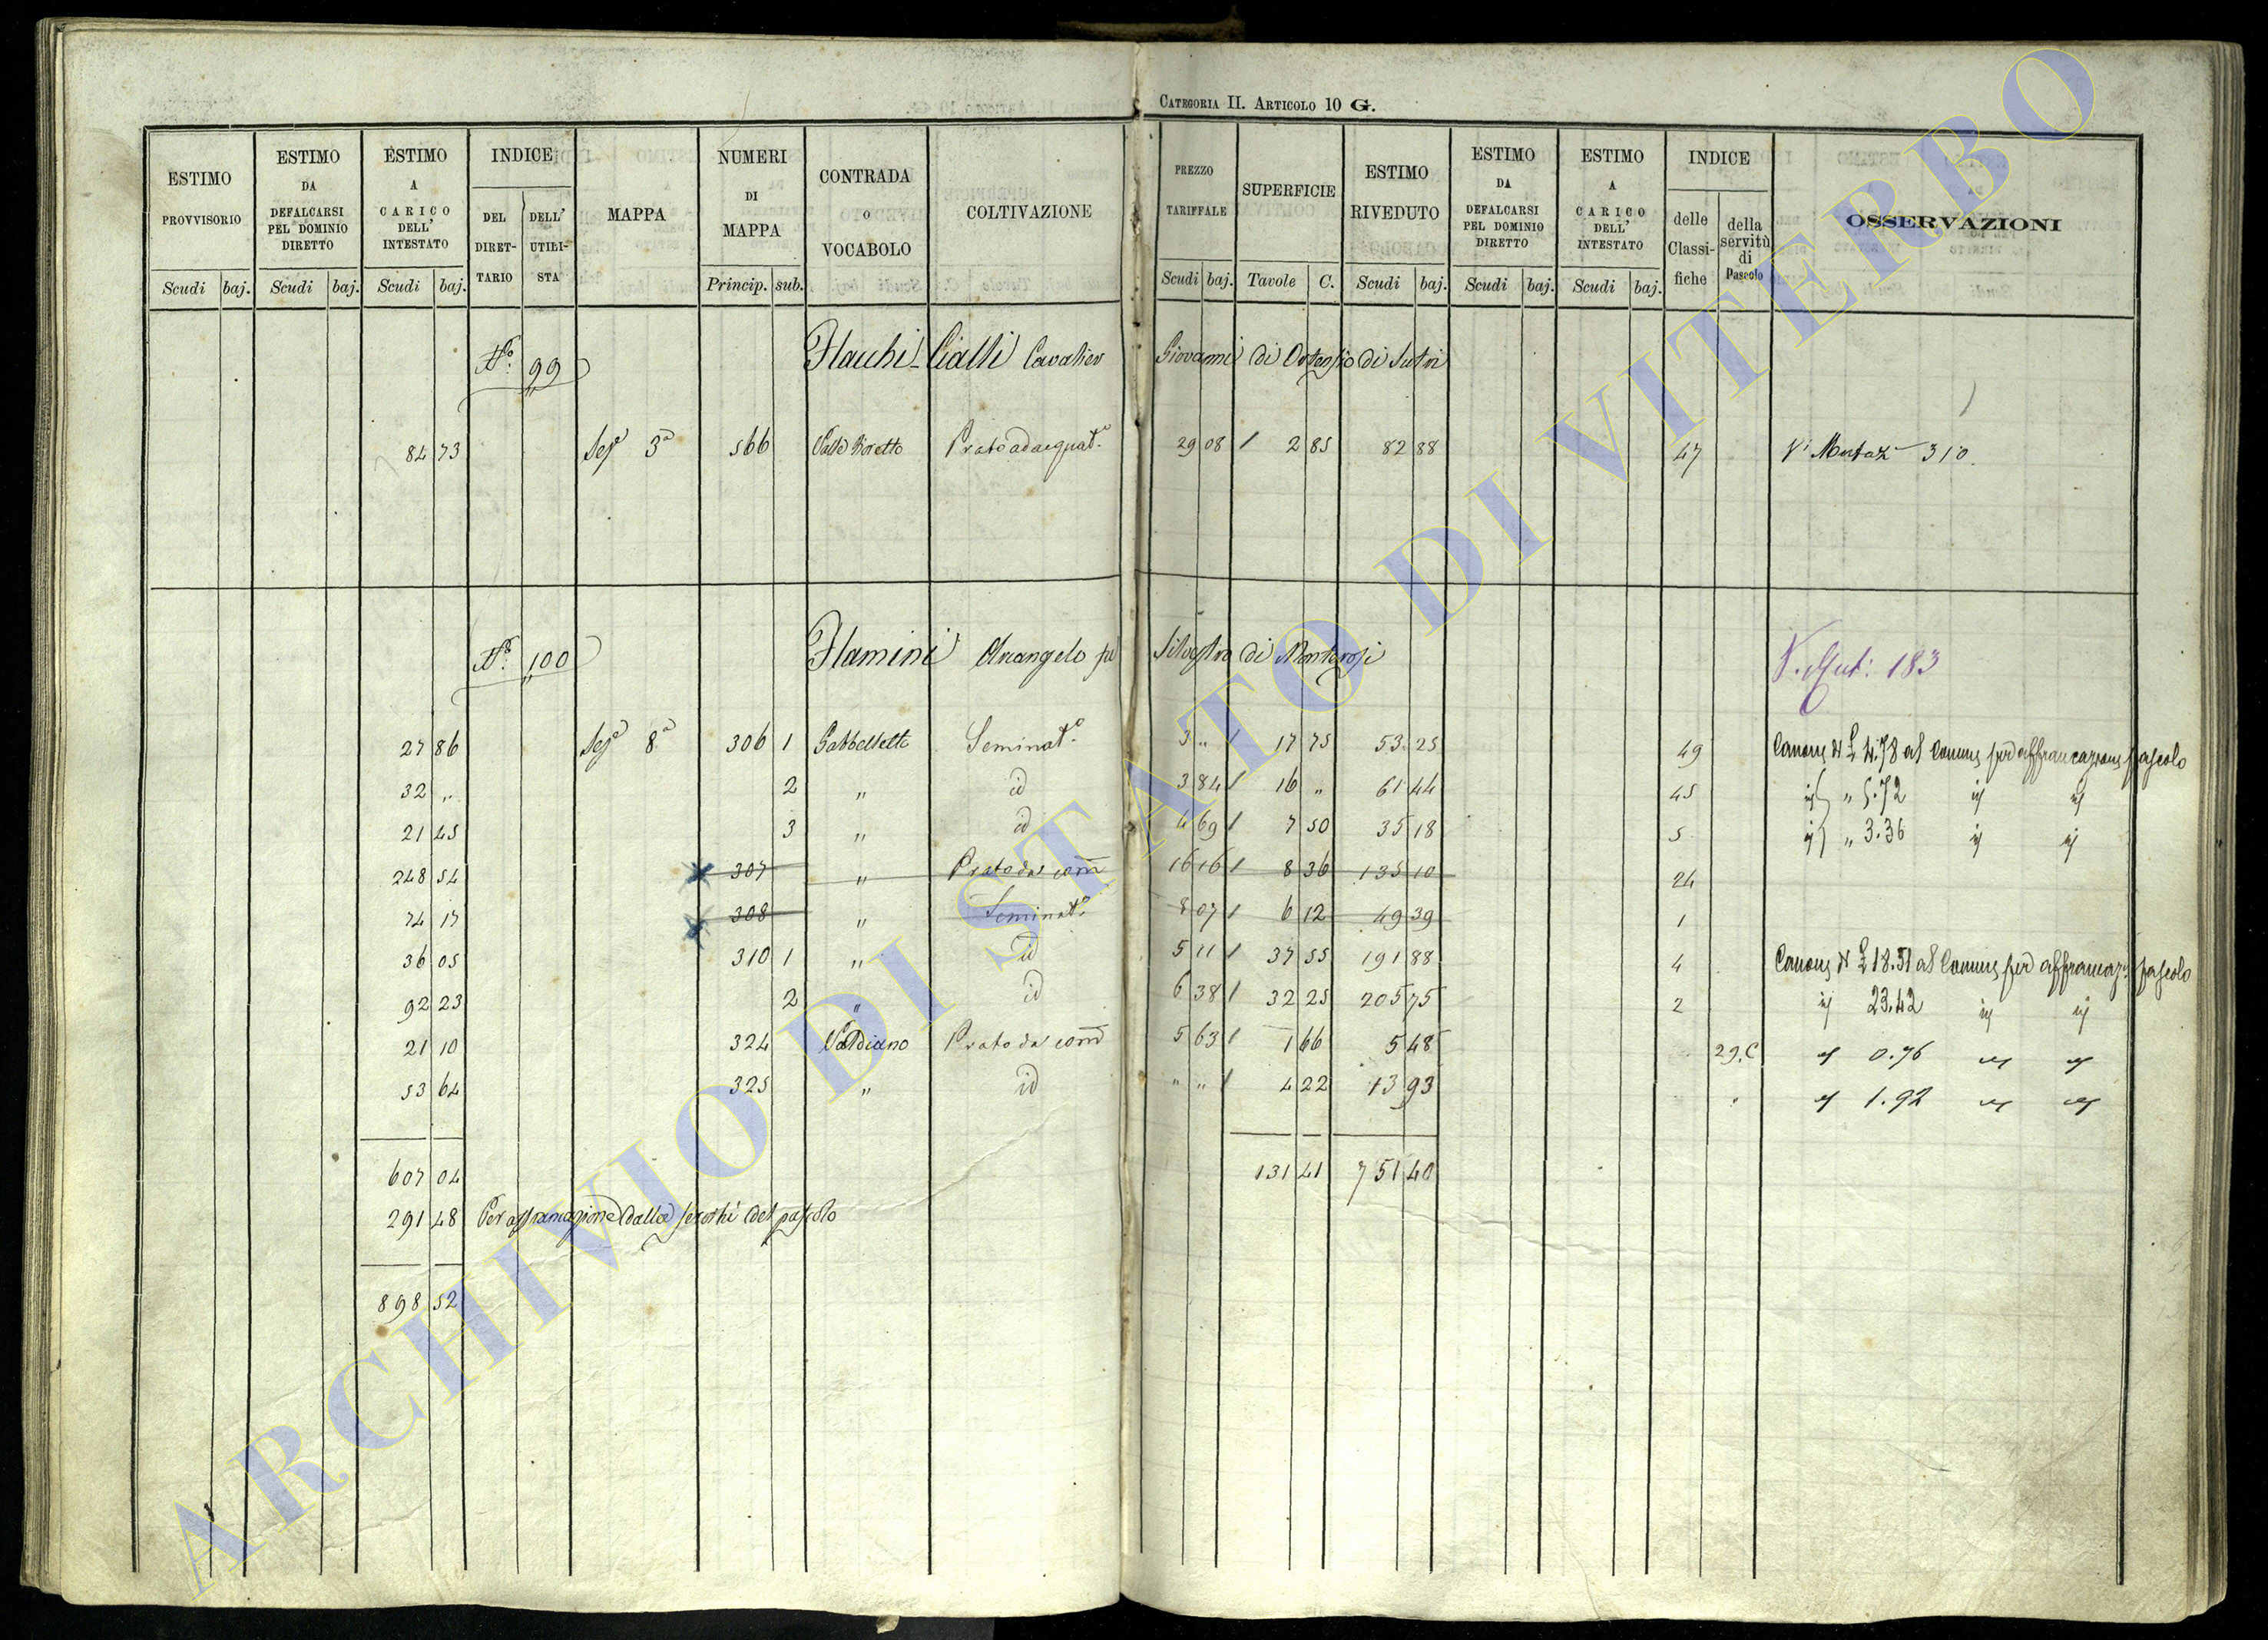 CATEGORIA II. ARTICOLO 10 G.
ESTIMO PROVVISORIO Scudi baj. ESTIMO DA DEFALCARSI PEL DOMINIO DIRETTO Scudi baj. ESTIMO A CARICO DELL' INTESTATO Scudi baj. INDICE DEL DIRETTARIO DELL' UTILISTA MAPPA NUMERI DI MAPPA Princip. sub. CONTRADA O VOCABOLO COLTIVAZIONE PREZZO TARIFFALE Scudi baj. SUPERFICIE Tavole C. ESTIMO RIVEDUTO Scudi baj. ESTIMO DA DEFALCARSI PEL DOMINIO DIRETTO Scudi baj. ESTIMO A CARICO DELL' INTESTATO Scudi baj. INDICE delle Classifiche della servitù di Pascolo OSSERVAZIONI
N.º 99 Flacchi-Cialli Cavalier Giovanni di Ortensio di Sutri
84 73 Sez.ª 3ª 566 Valle Prato adacquat.º 29 08 / 2 85 82 88 47 310
N.º 100 Flamini Arcangelo fu Silvestro di Monterosi V. Mut: 183
27 86 Sez.ª 8.ª 306 1 Gabbelletta Seminat.º 3 „ / 17 75 53 25 49 Canone di £ 4.78 al Comune per affrancazione pascolo
32 „ 2 „ id 3 84 / 16 „ 61 44 45 id „ 5.72 id id
21 45 3 „ id 4 69 / 7 50 35 18 5 id „ 3.36 id id
248 54 307 „ Prato da com 16 16 / 8 36 135 10 24
74 17 308 „ Seminat.º 8 07 / 6 12 49 39 1
36 05 310 1 „ id 5 11 / 37 55 191 88 4 Canone di £ 18.51 al Comune per affrancaz. pascolo
92 23 2 „ id 6 38 / 32 25 205 75 2 id 23.42 id id
21 10 324 Valdiano Prato da com 5 63 / 1 66 5 48 29.C id 0.76 id id
53 64 325 „ id „ „ / 4 22 13 93 id 1.92 id id
607 04 131 41 751 40
291 48 Per affrancazione dalla servitù del pascolo
898 52
ARCHIVIO DI STATO DI VITERBO